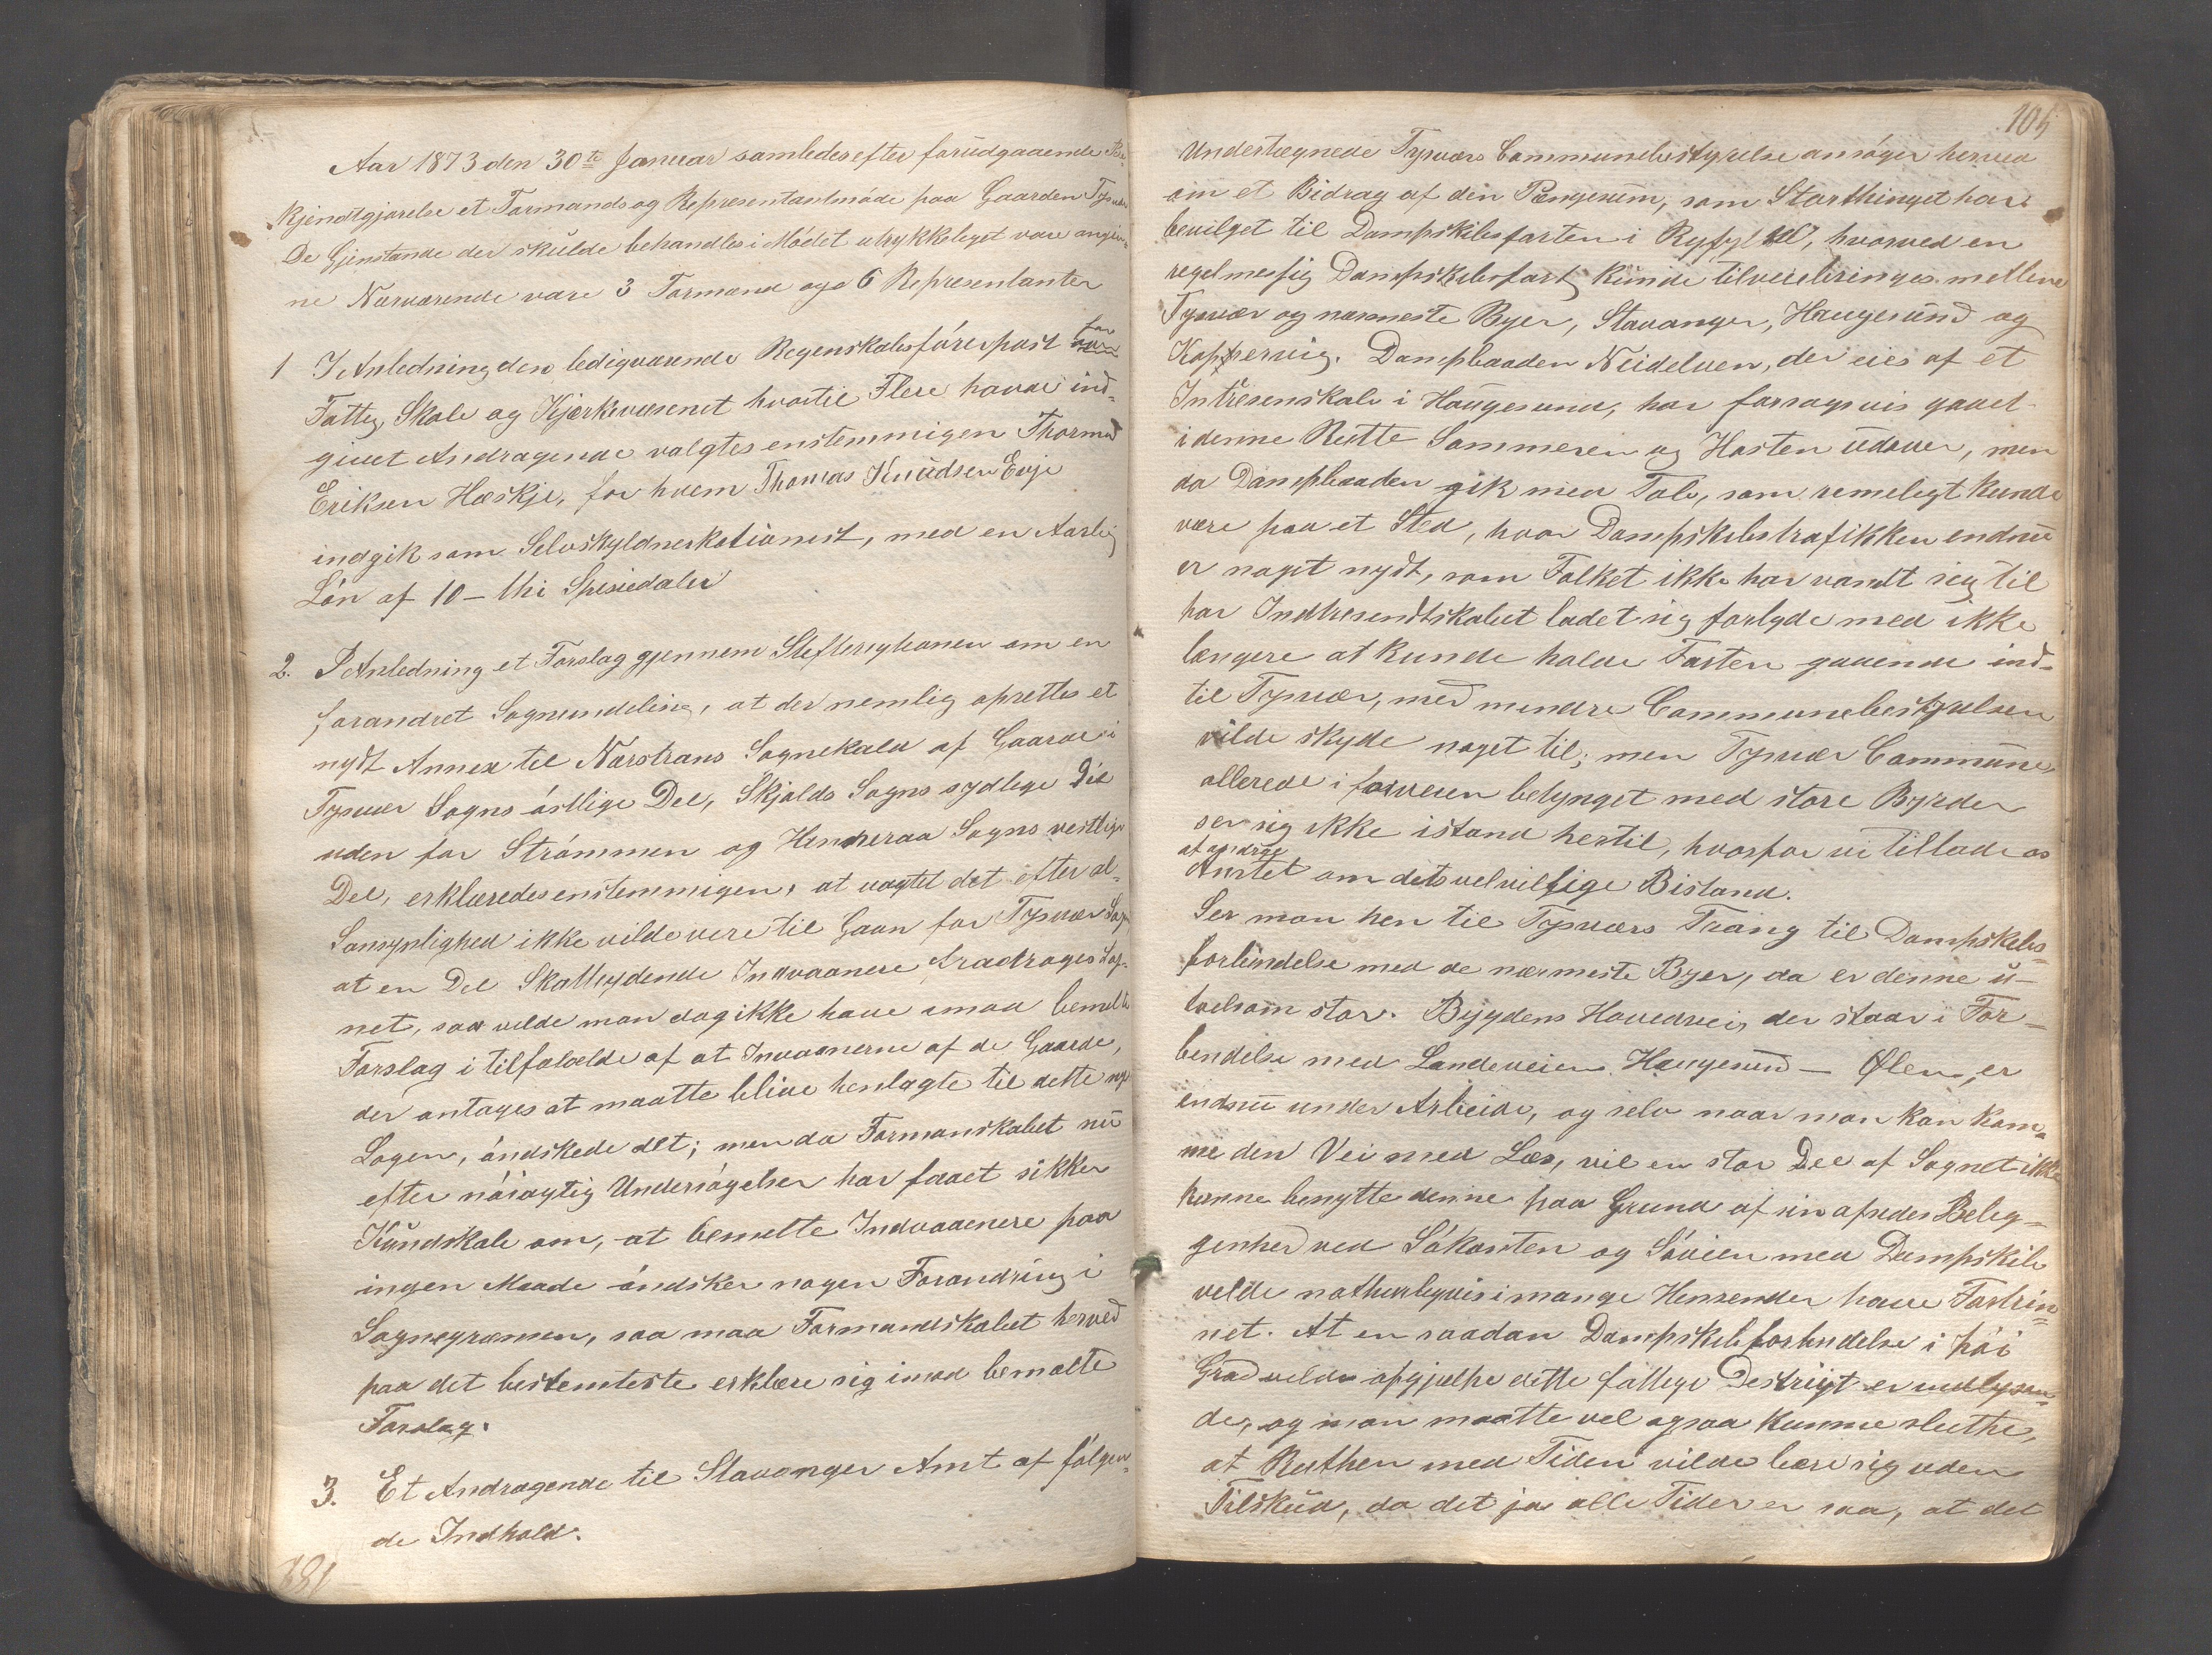 Aar 1873 den 30te Januar samledes efter forudgaaende Be-
kjendtgjørelse et Formands og Representantmøde paa Gaarden Tysvær
De Gjenstande der skulde behandles i Mødet utrykkeligst vare angiv-
ne Nærværende vare 3 Formænd og 6 Representanter
1 I Anledning den ledigværende Regenskabsførerpost for
Fattig, Skole og Kjærkevæsenet hvortil Flere havde ind-
givet Andragende valgtes enstemmigen Thormod
Eriksen Hæskje, for hvem Thomas Knudsen Evje
indgik som Selvskyldnerkationist, med en Aarlig
Løn af 10 - thi Spesiedaler
2. I Anledning et Forslag gjennem Stiftsreytionen om en
forandret Sogneindeling, at der nemlig oprettes et
nydt Annex til Nærstrans Sognekald af Gaarde i
Tysvær Sogns østlige Del, Skjolds Sogns sydlige Del
uden for Strømmen og Hinderaa Sogns vestlige
Del, erklæredes enstemmigen, at uagtet det efter al-
Sansynlighed ikke vilde være til Gavn for Tysvær Sogn
at en Del Skatteydende Indvaanere fradrages Sog-
net, saa vilde man dog ikke have imod bemelte
Forslag i tilfælde af at Invaanerne af de Gaarde,
der antages at maatte blive henlagte til dette nye
Sogen, øndskede det; men da Formanskabet nu
efter nøiagtig Undersøgelser har faaet sikker
Kundskab om, at bemelte Indvaanere paa
ingen Maade øndsker nogen Forandring i
Sognegrænsen, saa maa Formandskabet herved
paa det bestemteste erklære sig imod bemelte
Forslag.
3. Et Andragende til Stavanger Amt af følgen-
de Indhold.
181
105
Undertegnede Tysvær Communebestyrelse ansøger herved
om et Bidrag af den Pængesum, som Storthinget har
bevilget til Dampskibsfarten i Ryfylke, hvorved en
regelmessig Dampskibsfart kunde tilveiebringes mellem
Tysvær og nærmeste Byer, Stavanger, Haugesund og
Kopervig. Dampbaaden Neidelven, der eies af et
Intresenskab i Haugesund, har forsøgsvis gaaet
i denne Rutte Sommeren og Høsten udover, men
da Dampbaaden gik med Tab, som remeligt kunde
være paa et Sted, hvor Dampskibstrafikken endnu
er noget nydt, som Folket ikke har vandt sig til
har Indtresendtskabet ladet sig forlyde med ikke
længere at kunde holde Farten gaaende ind-
til Tysvær, med mindre Communebestyrelsen
vilde skyde noget til; men Tysvær Commune
allerede i forveien betynget med store Byrder
ser sig ikke istand hertil, hvorfor vi tillade os
at andrage
Amtet om dets velvillige Bistand.
Ser man hen til Tysværs Trang til Dampskibs-
forbindelse med de nærmeste Byer, da er denne u-
tvelsom stor. Bygdens Hovedvei, der staar i For-
bendelse med Landeveien Haugesund - Ølen, er
endnu under Arbeide, og selv naar man kan kom-
me den Vei med Læs, vil en stor Del af Sognet ikke
kunne benytte denne paa Grund af sin afsides Beleg-
genhed ved Søkanten og Søveien med Dampskib
velde nathurligvis i mange Hensender have Fortrin-
net. At en saadan Dampskibsforbindelse i høi
Grad vilde opgjælpe dette fattige Destrigt er indlysen-
de, og man maatte vel ogsaa kunne sluthe,
at Ruthen med Tiden vilde bære sig uden
Tilskud, da det jo alle Tider er saa, at det